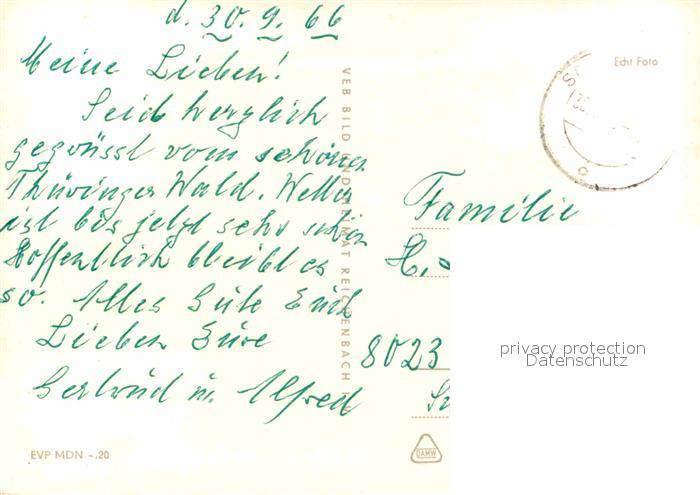 d. 30. 9. 66
Meine Lieben!
Seid herzlich
gegrüsst vom schönen
Thüringer Wald. Wetter
ist bis jetzt sehr schön
Hoffentlich bleibt es
so. Alles Gute Euch
Lieben Eure
Gertrud u. Alfred
EVP MDN -,20
VEB BILD UND HEIMAT REICHENBACH
Echt Foto
Familie
H.
8023
DAMW
privacy protection
Datenschutz